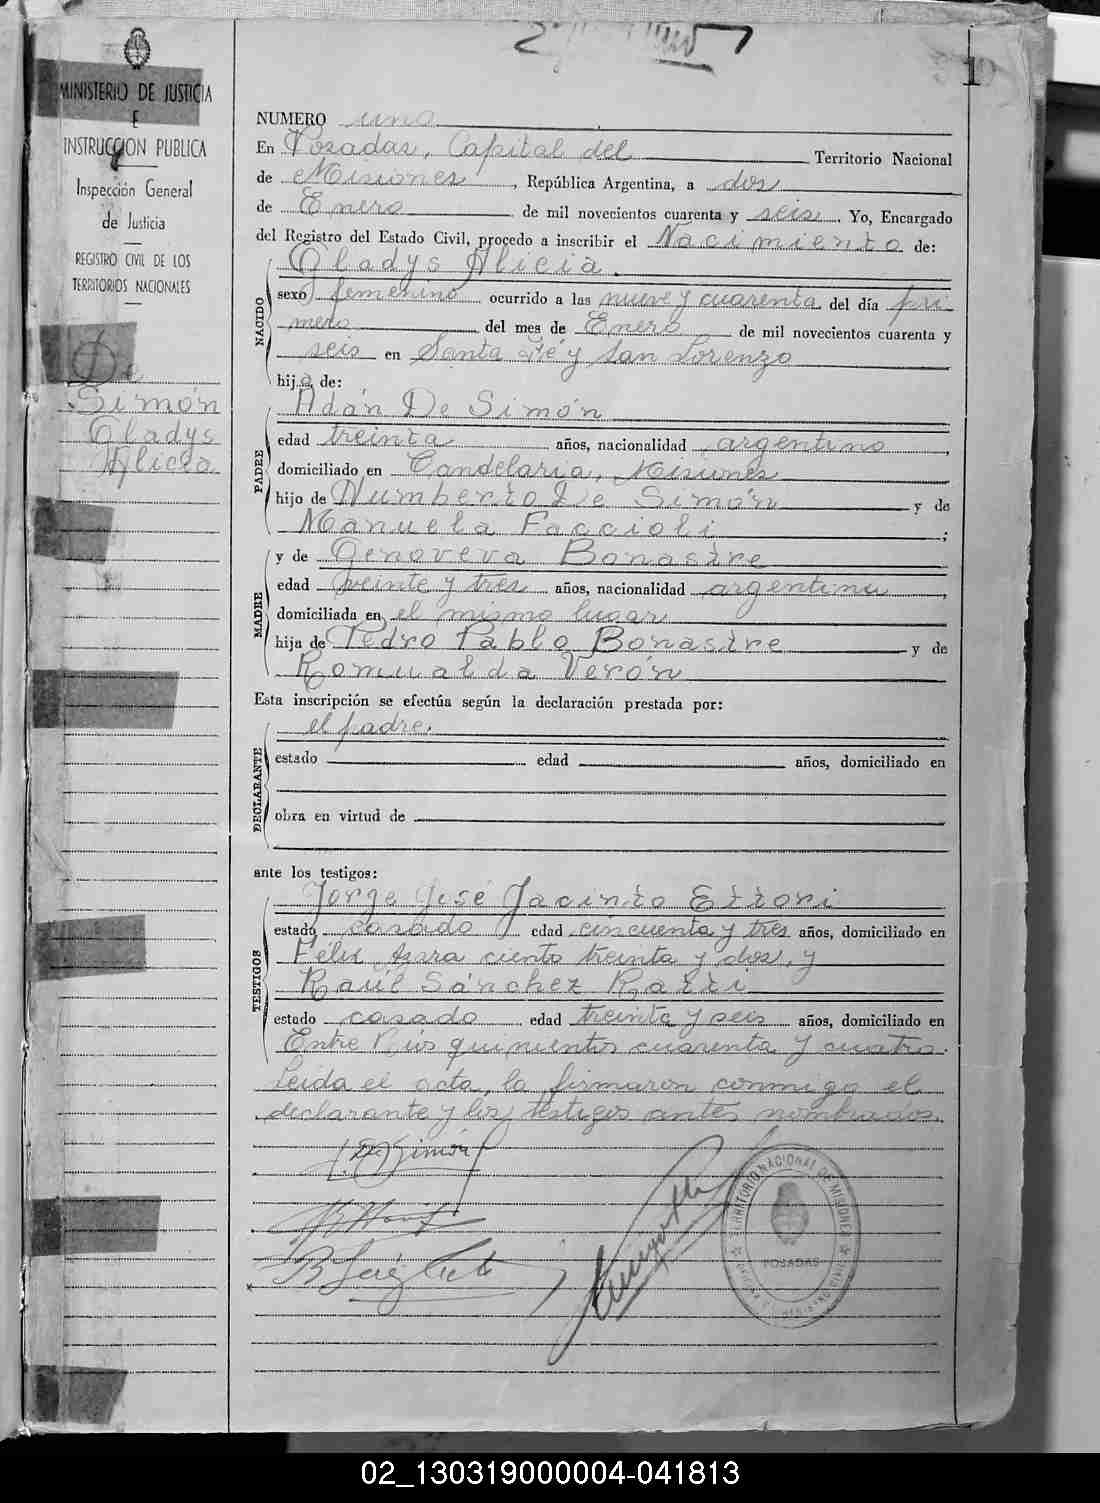 1
MINISTERIO DE JUSTICIA
E
INSTRUCCION PUBLICA
Inspección General
de Justicia
REGISTRO CIVIL DE LOS
TERRITORIOS NACIONALES
De
Simón
Gladys
Alicia
NUMERO uno
En Posadas, Capital del Territorio Nacional
de Misiones, República Argentina, a dos
de Enero de mil novecientos cuarenta y seis. Yo, Encargado
del Registro del Estado Civil, procedo a inscribir el Nacimiento de:
NACIDO
Gladys Alicia.
sexo femenino ocurrido a las nueve y cuarenta del día pri
mero del mes de Enero de mil novecientos cuarenta y
seis en Santa Fé y San Lorenzo
hija de:
PADRE
Adán De Simón
edad treinta años, nacionalidad argentino,
domiciliado en Candelaria, Misiones
hijo de Humberto De Simón y de
Manuela Faccioli;
MADRE
y de Genoveva Bonastre
edad veinte y tres años, nacionalidad argentina,
domiciliada en el mismo lugar
hija de Pedro Pablo Bonastre y de
Romualda Verón
Esta inscripción se efectúa según la declaración prestada por:
DECLARANTE
el padre.
estado edad años, domiciliado en
obra en virtud de
ante los testigos:
TESTIGOS
Jorge José Jacinto Ettori
estado casado edad cincuenta y tres años, domiciliado en
Félix Azara ciento treinta y dos, y
Raúl Sánchez Ratti
estado casado edad treinta y seis años, domiciliado en
Entre Ríos quinientos cuarenta y cuatro.
Leída el acta, la firmaron conmigo el
declarante y los testigos antes nombrados.
TERRITORIO NACIONAL DE MISIONES
POSADAS
02_130319000004-041813